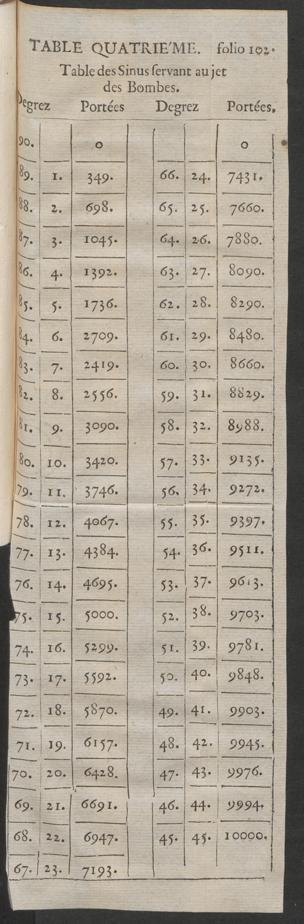 TABLE QUATRIE'ME. folio 192.
Table des Sinus servant au jet
des Bombes.
Degrez Portées Degrez Portées.
90. 0 0
89. 1. 349. 66. 24. 7431.
88. 2. 698. 65. 25. 7660.
87. 3. 1045. 64. 26. 7880.
86. 4. 1392. 63. 27. 8090.
85. 5. 1736. 62. 28. 8290.
84. 6. 2709. 61. 29. 8480.
83. 7. 2419. 60. 30. 8660.
82. 8. 2556. 59. 31. 8829.
81. 9. 3090. 58. 32. 8988.
80. 10. 3420. 57. 33. 9135.
79. 11. 3746. 56. 34. 9272.
78. 12. 4067. 55. 35. 9397.
77. 13. 4384. 54. 36. 9511.
76. 14. 4695. 53. 37. 9613.
75. 15. 5000. 52. 38. 9703.
74. 16. 5299. 51. 39. 9781.
73. 17. 5592. 50. 40. 9848.
72. 18. 5870. 49. 41. 9903.
71. 19. 6157. 48. 42. 9945.
70. 20. 6428. 47. 43. 9976.
69. 21. 6691. 46. 44. 9994.
68. 22. 6947. 45. 45. 10000.
67. 23. 7193.